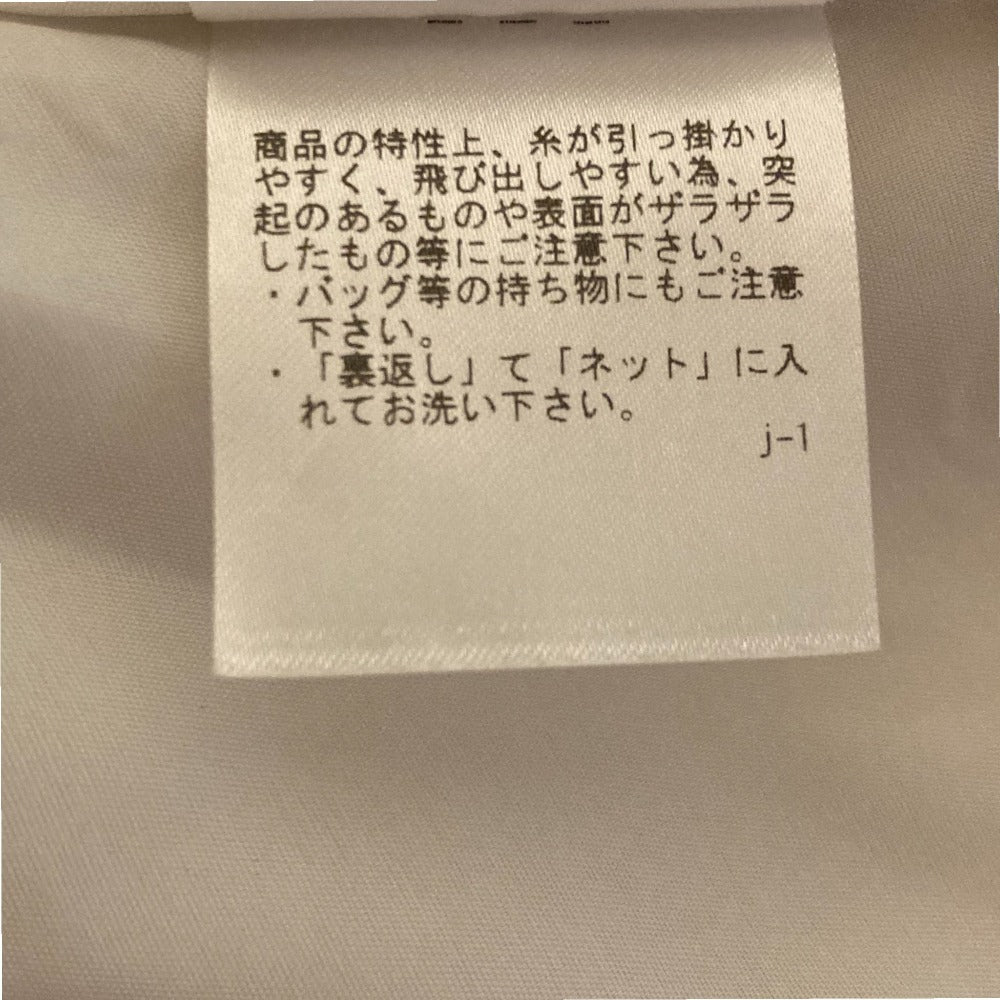 商品の特性上、糸が引っ掛かり
やすく、飛び出しやすい為、突
起のあるものや表面がザラザラ
したもの等にご注意下さい。
・バッグ等の持ち物にもご注意
下さい。
・「裏返し」て「ネット」に入
れてお洗い下さい。
j-1